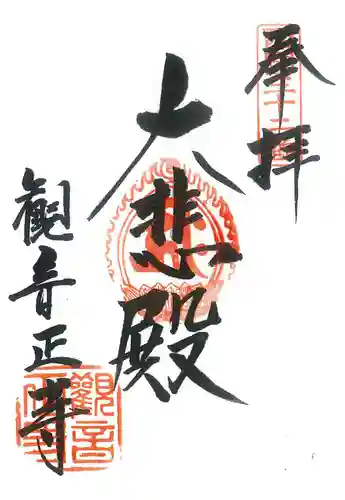 奉拝
大悲殿
觀音正寺